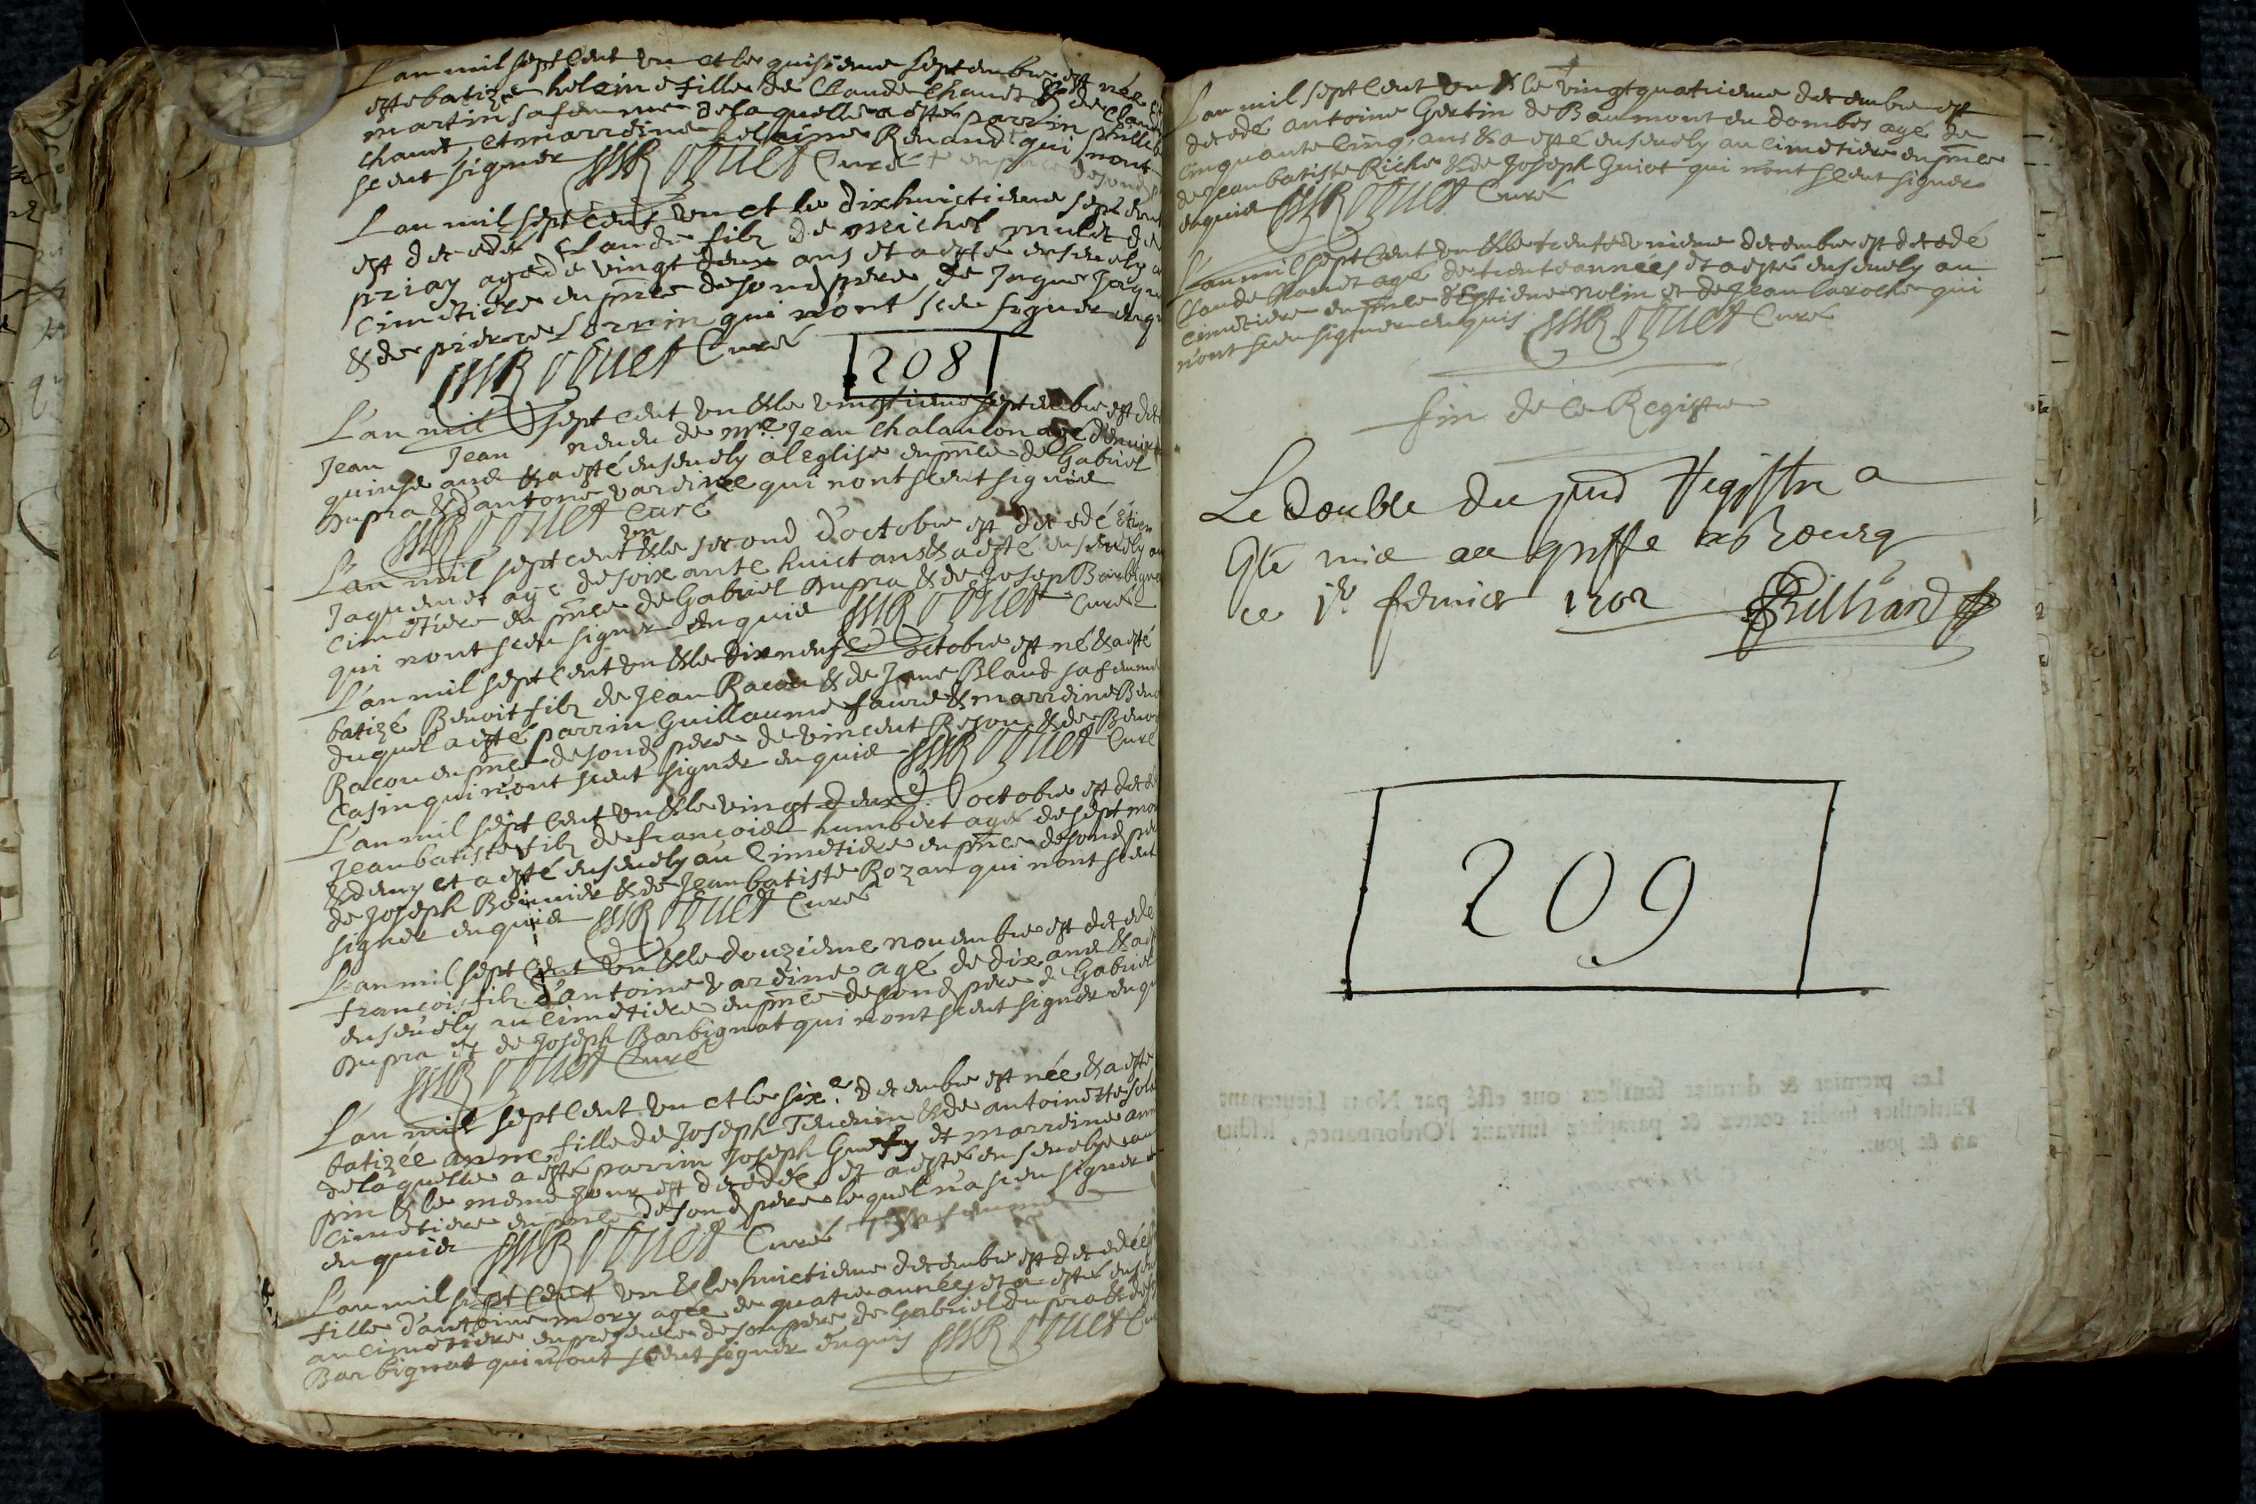 L'an mil sept cent un et le quisieme septembre est née et
esté batizée heleine fille de Claude Chanet & de Clau
martin sa femme de laquelle a esté parrin
Chanet, et marreine helaine Renand qui n'ont
sceut signer Curé
L'an mil sept cent un et le dixhuictieme septemb
est decedé Claude filz de michel mulet de
priay agé de vingt deux ans et a esté ensevely au
cimetiere en pnce de sond pere de Jaque
& de pierre Lorrin qui n'ont sceu signer enq
Curé
208
L'an mil sept cent un & le vingtieme septembre est dec
Jean Jean neveu de mre Jean Chalandon agé d'environ
quinze ans & a esté ensevely a l'eglise en pnce de Gabriel
Dupra & d'antone vardine qui n'ont sceut signer
Curé
L'an mil sept cent un & le second d'octobre est decedé Etien
Jaquemet agé de soixante huict ans & a esté ensevely au
cimetiere en pnce de Gabriel Dupra & de Josep Barbignat
qui n'ont sceu signer enquis Curé
L'an mil sept cent un & le dixneuf octobre est né & a esté
batizé Benoit filz de Jean Racou & de Jane Bland sa femme
duquel a esté parrin Guillaume faure & marreine Beno
Racou en pnce de sond pere de vincent Reson & de Benoi
Casin qui n'ont sceut signer enquis Curé
L'an mil sept cent un & le vingt deux octobre est dece
Jean batiste filz de françois humbert agé de sept moi
& demy et a esté ensevely au cimetiere en pnce de sond per
de Joseph Bonnier & de Jean batiste Rozan qui n'ont sceut
signer enquis Curé
L'an mil sept cent un & le douzieme novembre est decedé
françois filz d'antoine vardine agé de dix ans & a e
ensevely au cimetiere en pnce de sond pere de Gabriel
Dupra et de Joseph Barbignat qui n'ont sceut signer enqu
Curé
L'an mil sept cent un et le sixe decembre est née & a esté
batizée anne fille de Joseph Tevenin & de antoinette
de laquelle a esté parrin Joseph et marreine ann
& le meme jour est decedée et a esté ensevelye au
cimetiere en pnce de sond pere lequel n'a sceu signer
enquis Curé
L'an mil sept cent un & le huictieme decembre est decedée
fille d'antoine mory agée de quatre années et a esté ensev
au cimetiere en presence de son pere de Gabriel dupra & de J
Barbignat qui n'ont sceut signer enquis Cu
L'an mil sept cent un & le vingtquatrieme decembre est
decedé antoine Gertin de Baumont en dombes agé de
cinquante cinq ans & a esté ensevely au cimetiere en pnce
de Jean batiste Riche & de Joseph Guiot qui n'ont sceut signer
enquis Curé
L'an mil sept cent un & le trente unieme decembre est decedé
Claude Chanet agé de trente années et a esté ensevely au
cimetiere en pnce d'Estiene Nolin et de Jean Laroche qui
n'ont sceu signer enquis Curé
fin de ce Registre
Le double du pnt Registre a
esté mis au greffe de Bourg
ce 1er fevrier 1702 Brilliand
209
Les premier & dernier feuillets ont esté par Nous Lieutenant
Particulier susdit cottez & paraphez suivant l'Ordonnance, lesdits
an & jour.